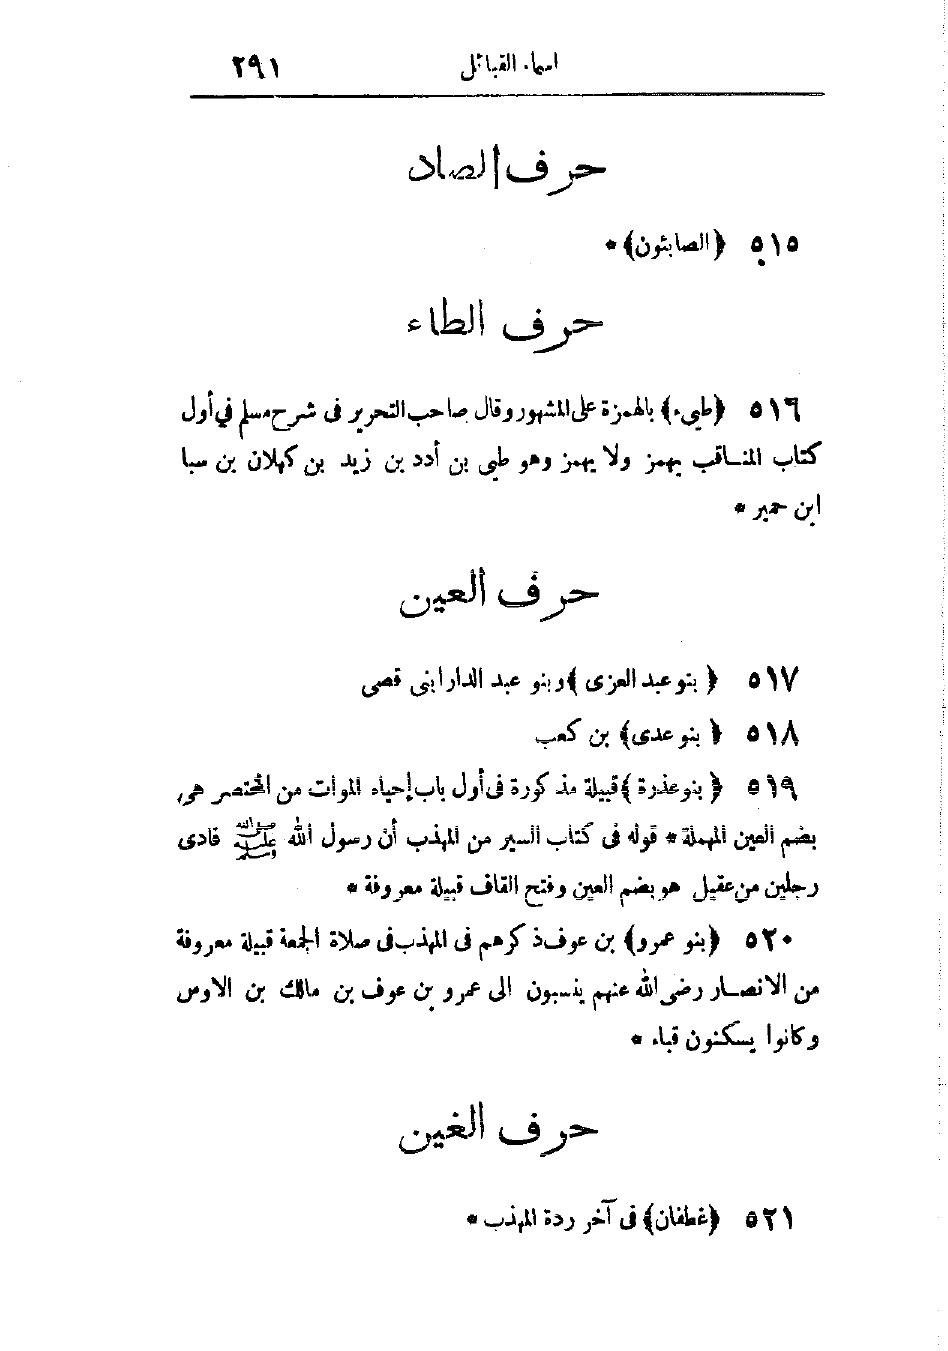 اسماء القبائل ٢٩١
حرف الصاد
٥١٥ ﴿الصابئون﴾ *
حرف الطاء
٥١٦ ﴿طيىء﴾ بالهمزة على المشهور وقال صاحب التحرير فى شرح مسلم فى أول
كتاب المناقب يهمز ولا يهمز وهو طيى بن أدد بن زيد بن كهلان بن سبا
ابن حمير *
حرف العين
٥١٧ ﴿بنو عبد العزى﴾ وبنو عبد الدار ابنى قصى
٥١٨ ﴿بنو عدى﴾ بن كعب
٥١٩ ﴿بنو عذرة﴾ قبيلة مذكورة فى أول باب إحياء الموات من المختصر هى
بضم العين المهملة * قوله فى كتاب السير من المهذب أن رسول الله ﷺ فادى
رجلين من عقيل هو بضم العين وفتح القاف قبيلة معروفة *
٥٢٠ ﴿بنو عمرو﴾ بن عوف ذكرهم فى المهذب فى صلاة الجمعة قبيلة معروفة
من الانصار رضى الله عنهم ينسبون الى عمرو بن عوف بن مالك بن الاوس
وكانوا يسكنون قباء *
حرف الغين
٥٢١ ﴿غطفان﴾ فى آخر ردة المهذب *